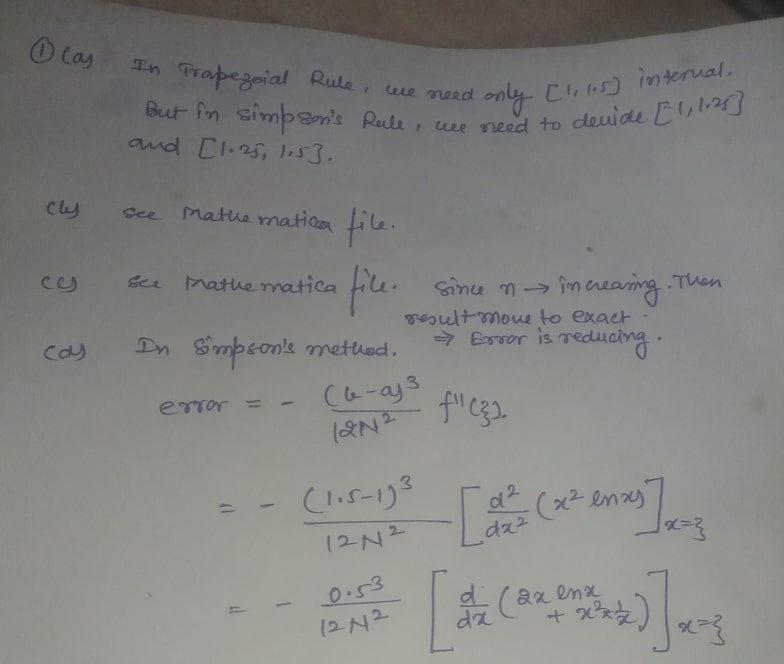 ① (a) In Trapezoial Rule, we need only [1, 1.5] interval.
But in simpson's Rule, we need to devide [1, 1.25]
and [1.25, 1.5].
(b) see Mathematica file.
(c) see Mathematica file. Since n → increasing. Then
result move to exact.
⇒ Error is reducing.
(d) In Simpson's method.
error = - (b-a)^3 / 12N^2 f''(ξ).
= - (1.5-1)^3 / 12N^2 [ d^2/dx^2 (x^2 ln x) ]_{x=ξ}
= - 0.5^3 / 12N^2 [ d/dx (2x ln x + x^2 × 1/x) ]_{x=ξ}